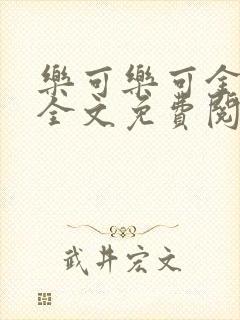 樂可樂可全
全文免費閱
武井宏文